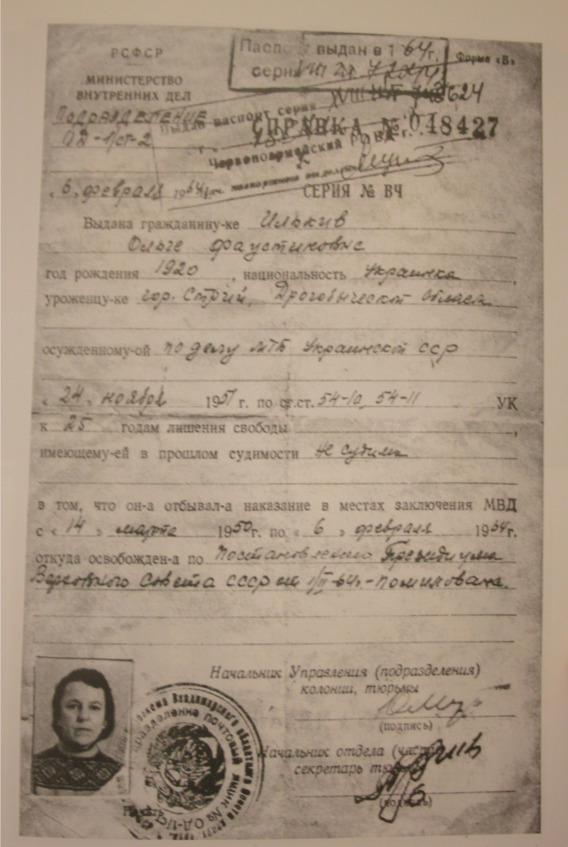 РСФСР
МИНИСТЕРСТВО
ВНУТРЕННИХ ДЕЛ
Подразделение
ОД-1/ст-2
Паспорт выдан в 1964г.
серия
Форма «В»
Выдано паспорт серия
Червоноармейский РОВД
СПРАВКА № 048427
„6„ февраля 1964г.
СЕРИЯ № ВЧ
Выдана гражданину-ке Илькив
Ольге Фаустиновне
год рождения 1920, национальность украинка,
уроженцу-ке гор. Стрий, Дрогобычской области
осужденному-ой по делу МГБ Украинской ССР
« 24 » ноября 1951 г. по ст.ст. 54-10, 54-11 УК
к 25 годам лишения свободы,
имеющему-ей в прошлом судимости не судима
в том, что он-а отбывал-а наказание в местах заключения МВД
с « 14 » марта 1950 г. по « 6 » февраля 1964г.
откуда освобожден-а по Постановлению Президиума
Верховного Совета СССР от 1/II-64г.-помилована.
Начальник Управления (подразделения)
колонии, тюрьмы
(подпись)
Начальник отдела (части)
секретарь тюрьмы
(подпись)
Владимирского областного
подразделение почтовый ящик № ОД-1/